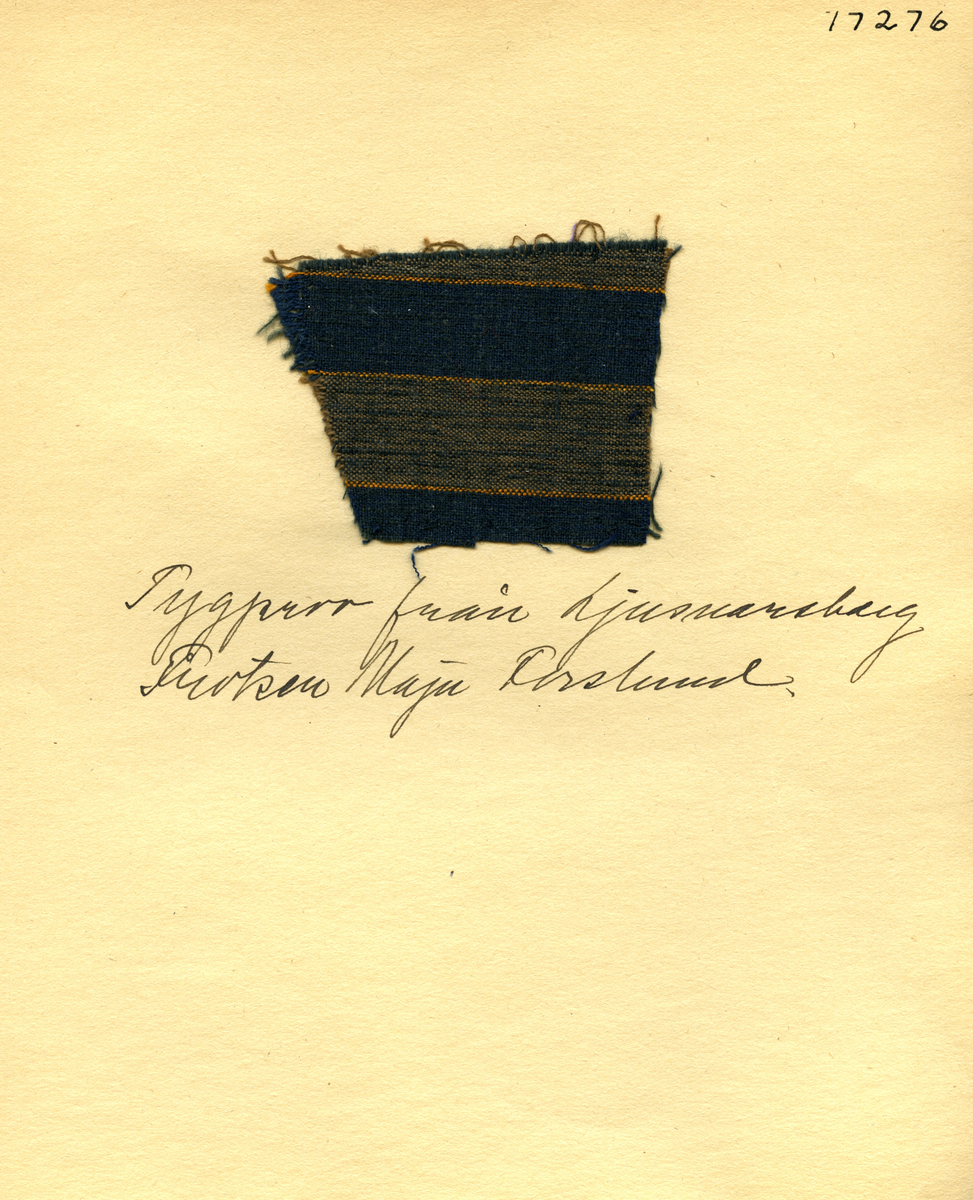 17276
Tygprov från Ljusnarsberg
Fröken Maja Forslund.